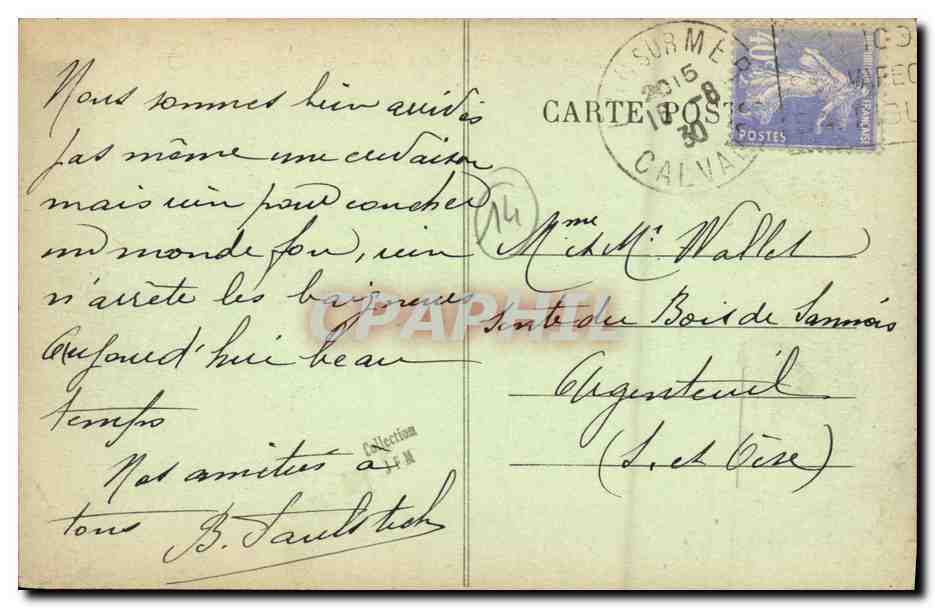 Nous sommes bien arrivés
pas même une crevaison
mais rien pour coucher
un monde fou, rien
n'arrête les baigneurs
Aujourd'hui beau
temps
Nos amitiés à
tous
B. Faulstich
Collection
JFM
14
CARTE POST
SUR MER
20 15
18 - 8
30
CALVA
40
POSTES
FRANÇAISE
Mme et Mr. Wallet
Sente du Bois de Sannois
Argenteuil
(S. et Oise)
CPAPHIL